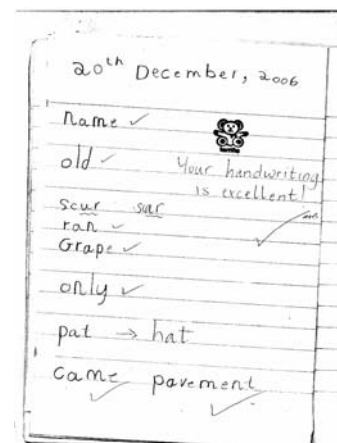 20th December, 2006
name ✓
old ✓ Your handwriting
is excellent!
scur sur
ran ✓
Grape ✓
only ✓
pat → hat
came pavement